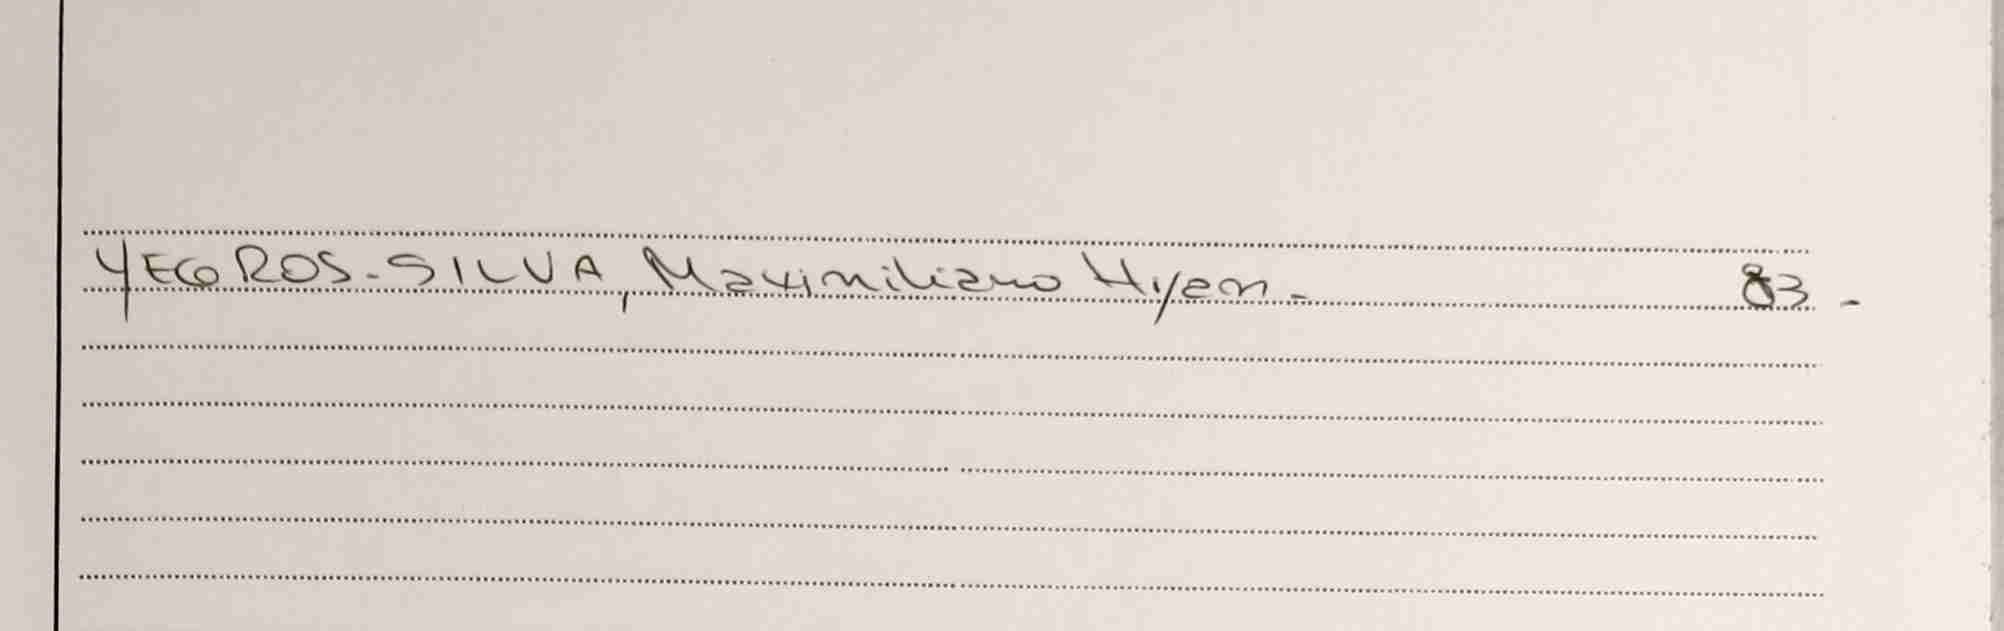 YEGROS-SILVA, Maximiliano Hiyen.- 83.-